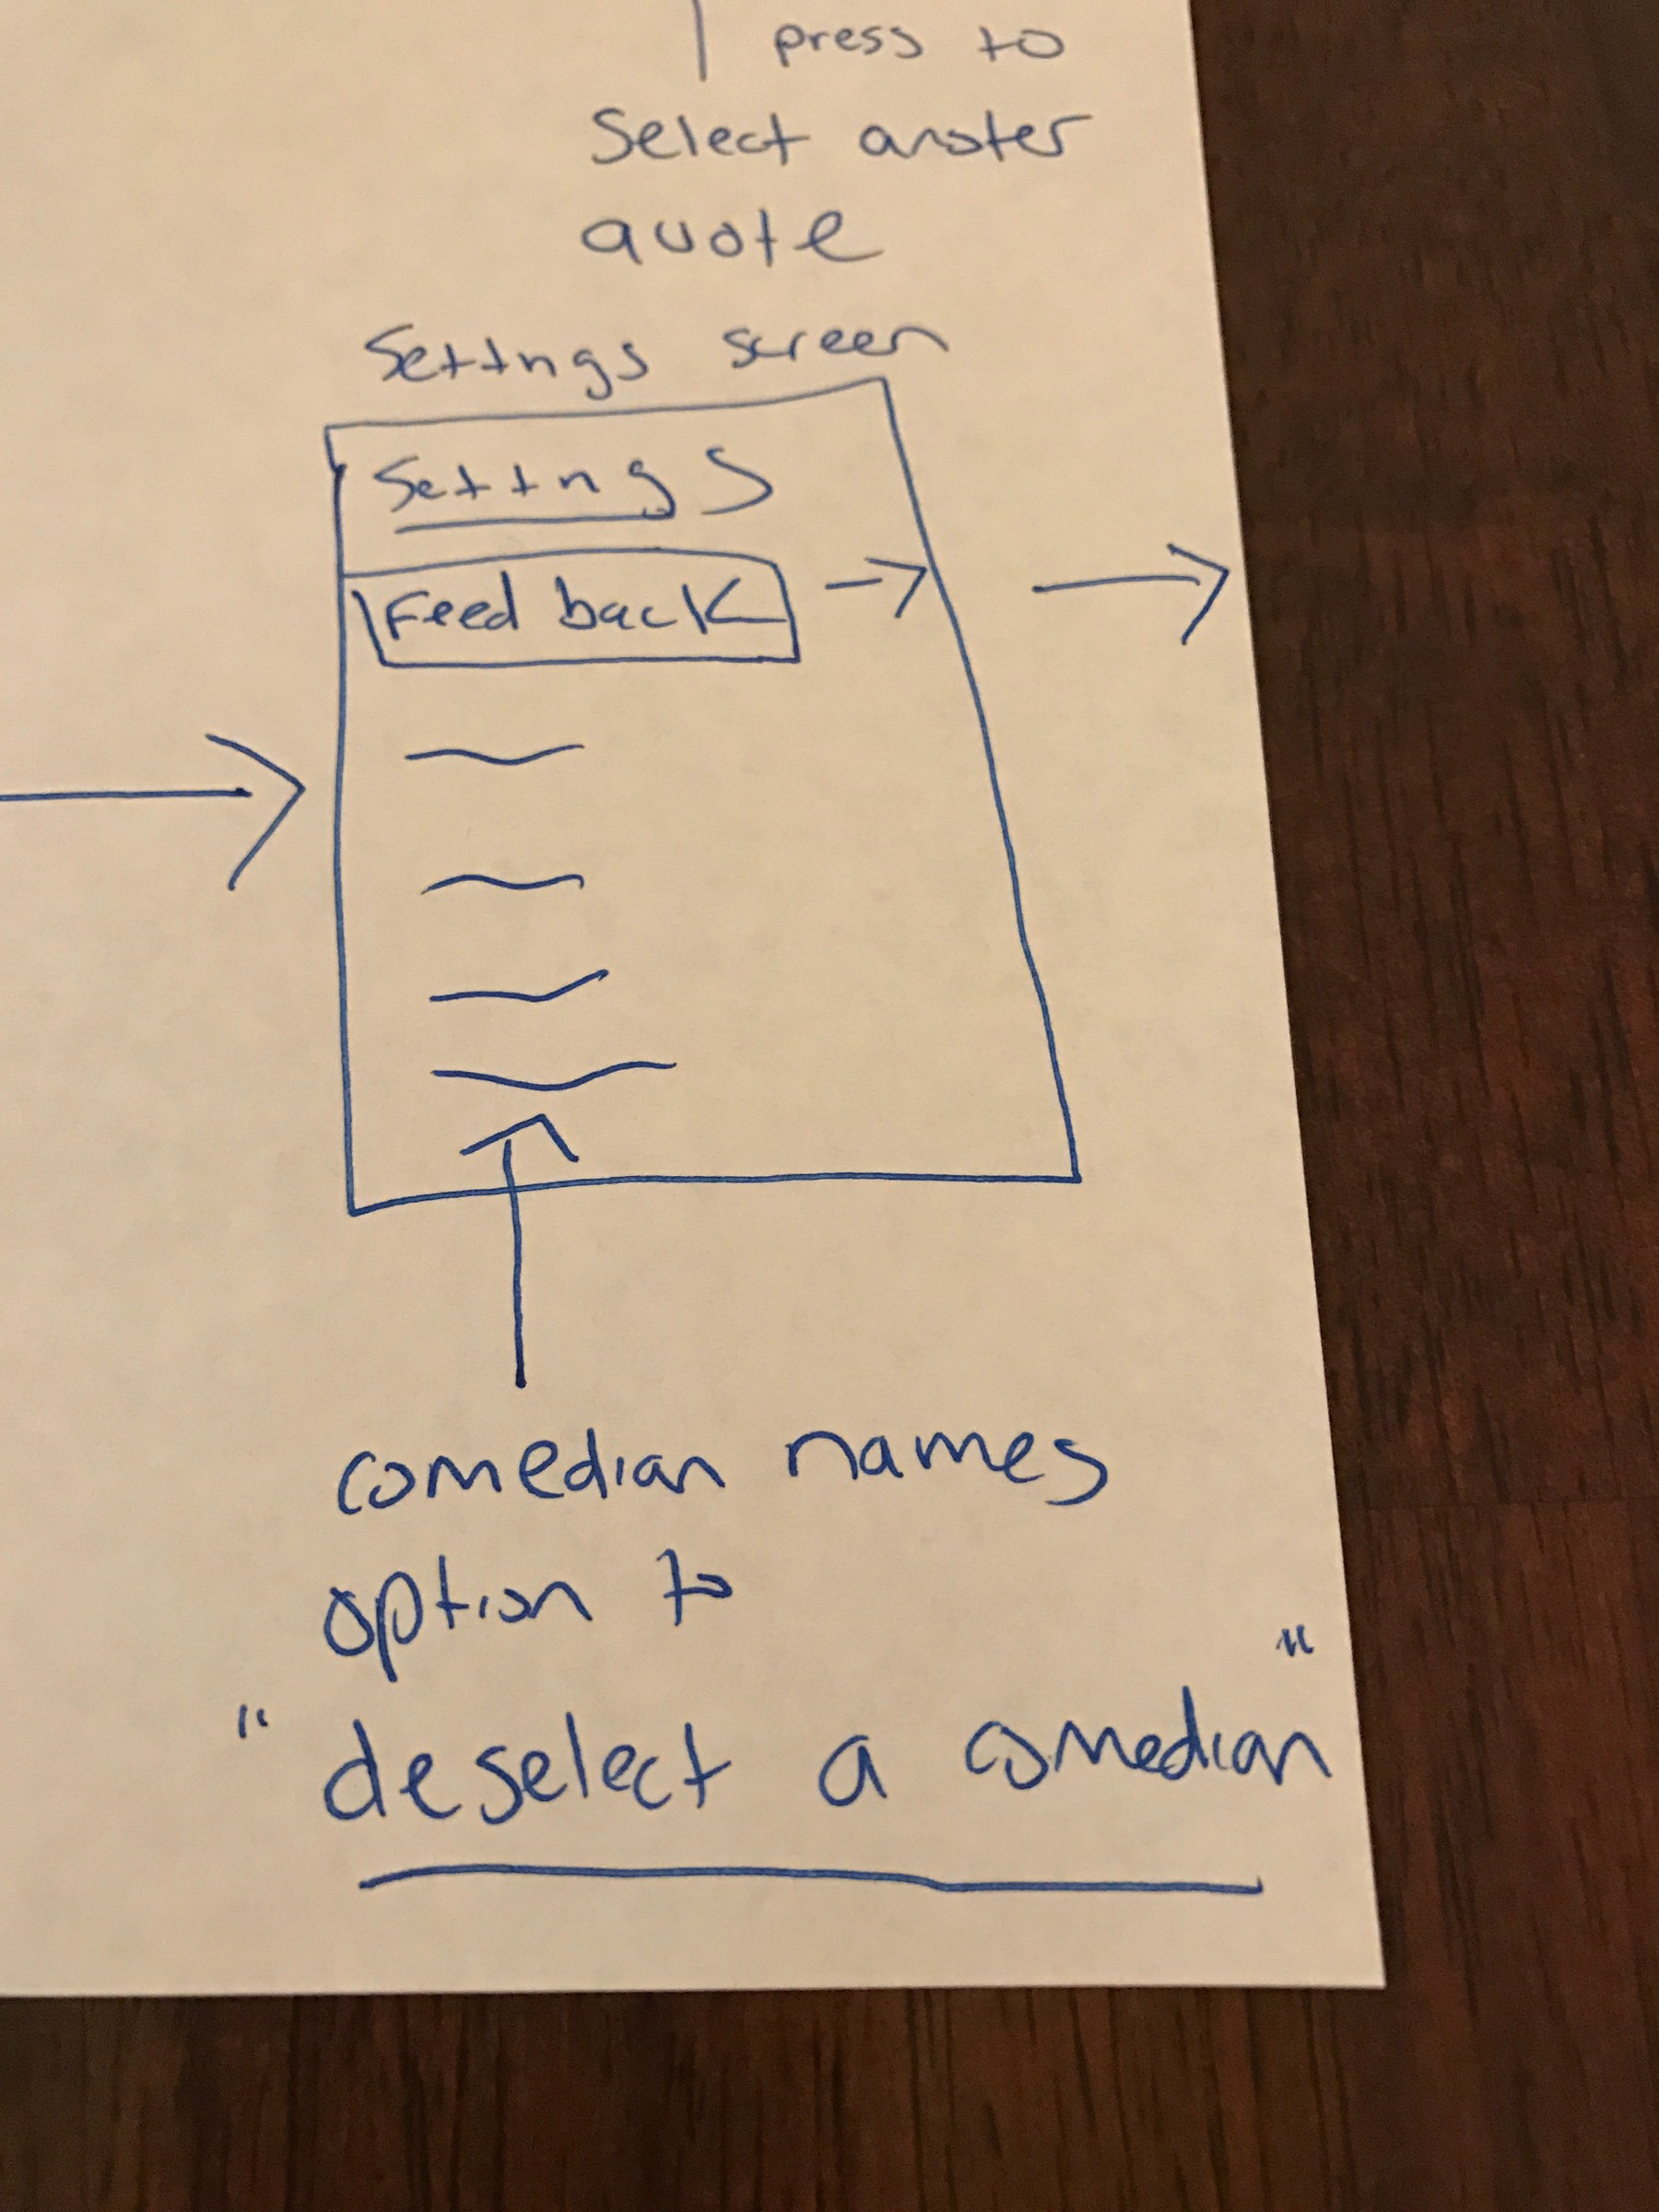 press to
Select anoter
quote
Settings screen
Settings
Feed back
comedian names
option to
"deselect a comedian"